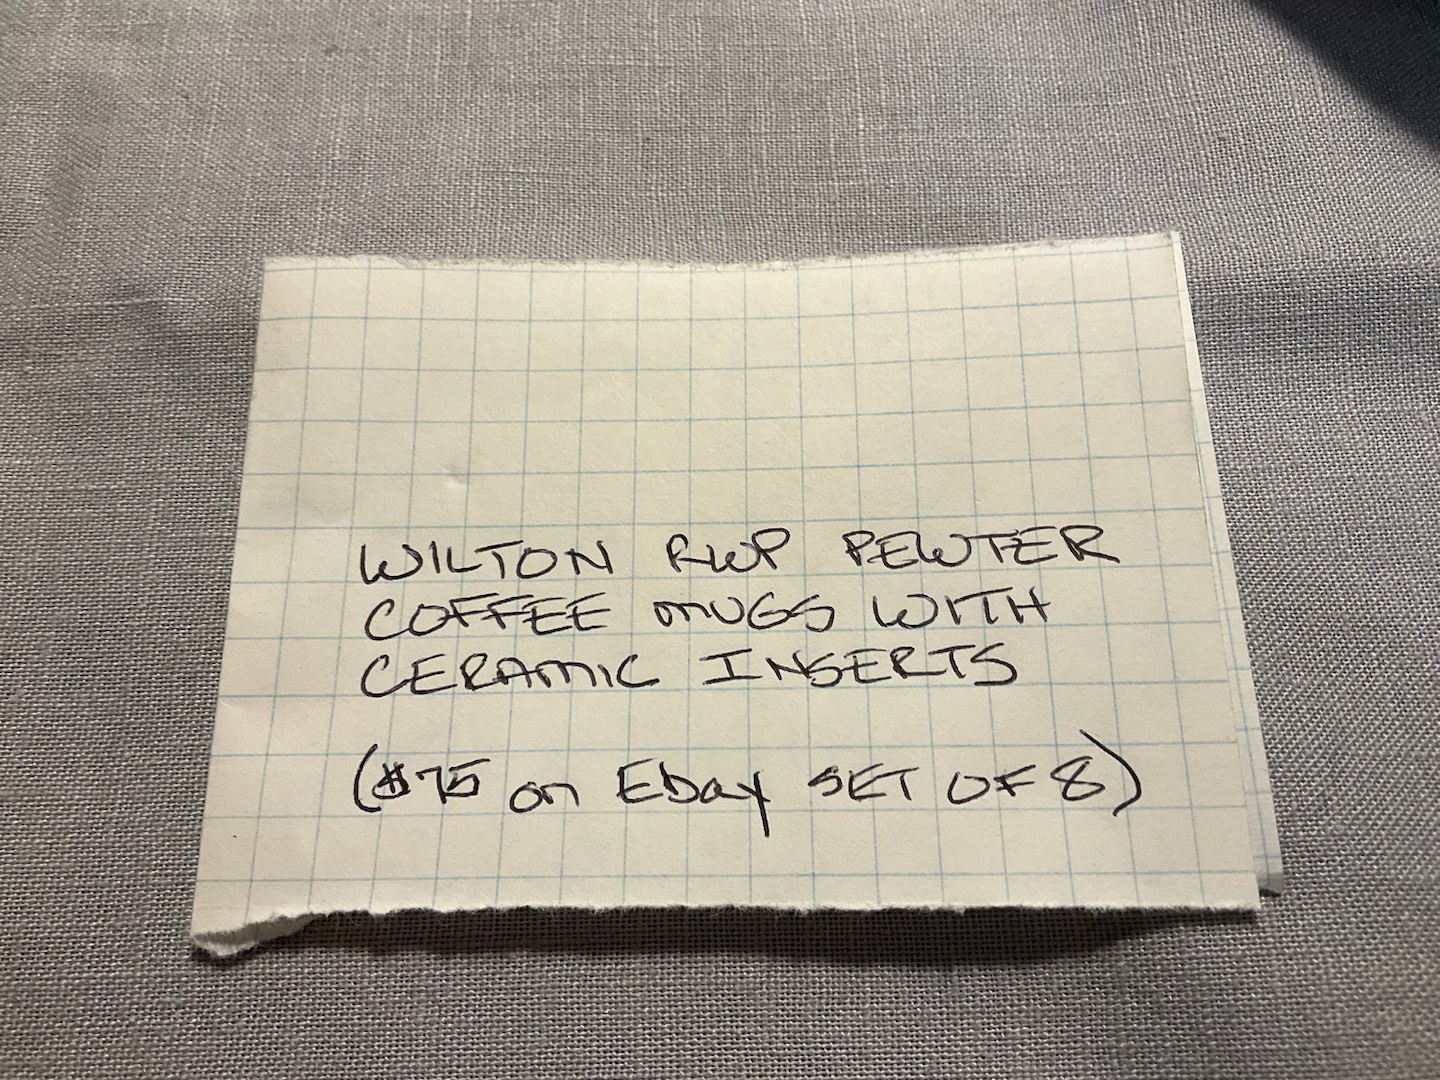 WILTON RWP PEWTER
COFFEE MUGS WITH
CERAMIC INSERTS
($75 on Ebay SET OF 8)